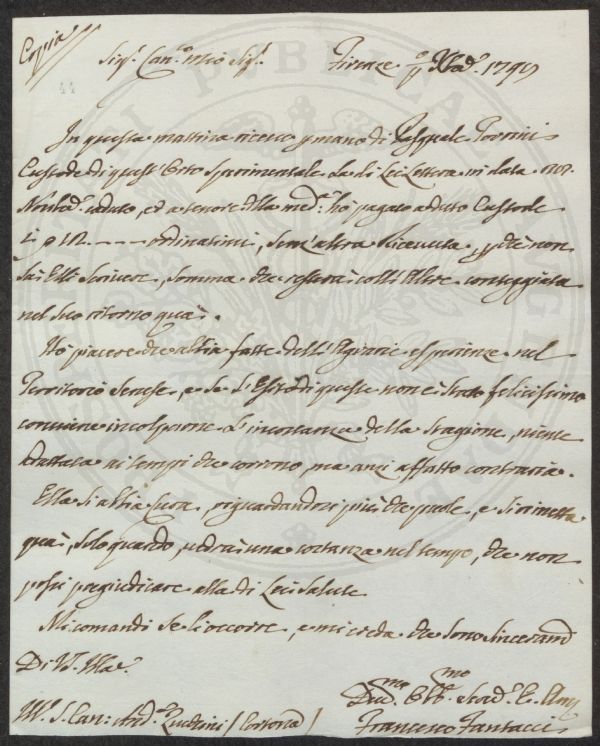 Copia
44
Sig.r Can.o mio Sig.r Firenze 1795
In questa mattina ricevo p mano di Pasquale Pornini
Custode di quest'Orto Sperimentale la di Lei Lettera in data
caduto, ed a tenore della med.a ho pagato a detto Custode
ordinatimi, senz'altra Ricevuta, p che non
sà Egli Scrivere, somma che resterà coll'Altre conteggiata
nel suo ritorno quà.
Ho piacere che abbia fatte dell'Agrarie esperienze nel
Territorio Senese, e se l'Esito di queste non è stato felicissimo
conviene incolparne l'incostanza della Stagione, niente
adattata ai tempi che corrono, ma anzi affatto contraria.
Ella si abbia cura, riguardandosi più che puole, e si rimetta
quà, solo quando vedrà una costanza nel tempo, che non
possa pregiudicare alla di Lei Salute
Mi comandi se Li occorre, e mi creda che sono sinceram.
Di VS. Ill.a
mo mo
Dev. Obb. Serv.
Francesco Fantacci
S. Can: And. Zucchini (Cortona)